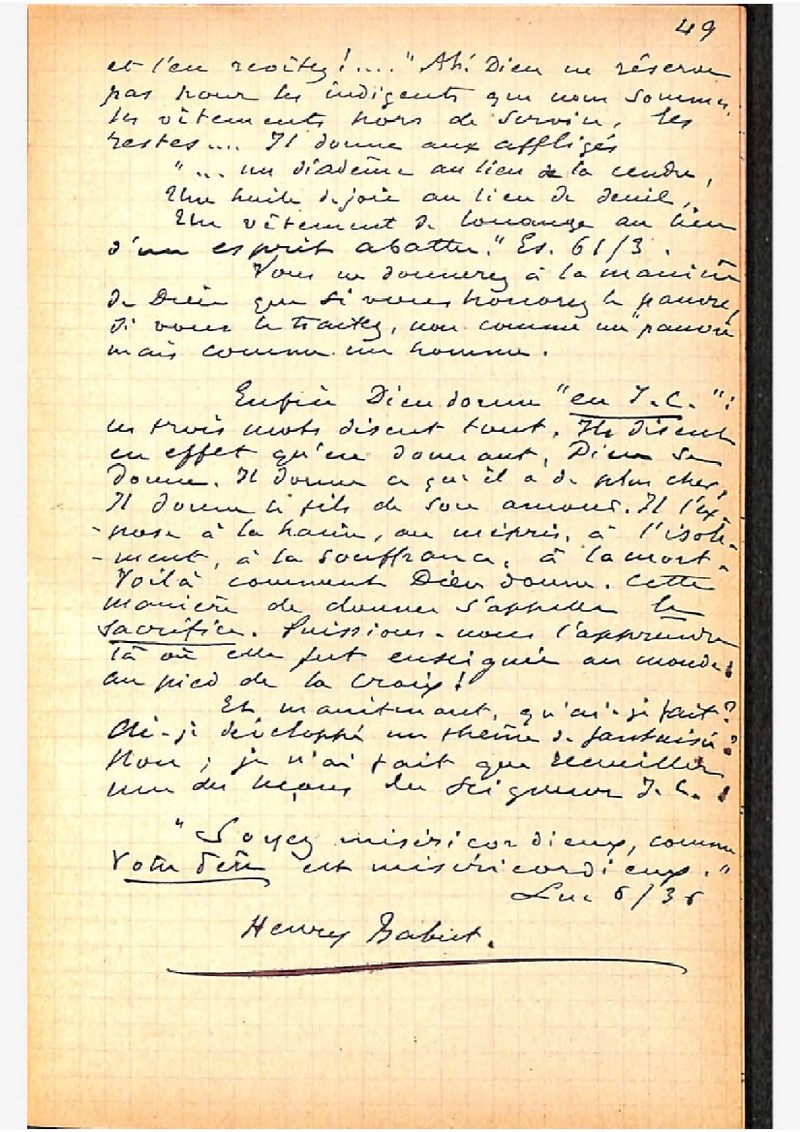 49
et l'en revêtez !.... " Ah ! Dieu ne réserve
pas pour les indigents que nous sommes,
les vêtements hors de service, les
restes.... Il donne aux affligés
"... un diadème au lieu de la cendre,
Une huile de joie au lieu de deuil,
Un vêtement de louange au lieu
d'un esprit abattu." Es. 61/3.
Vous ne donnerez à la manière
de Dieu que si vous honorez le pauvre,
si vous le traitez, non comme un "pauvre"
mais comme un homme.
Enfin Dieu donne "en J.C." :
ces trois mots disent tout. Ils disent
en effet qu'en donnant, Dieu se
donne. Il donne ce qu'il a de plus cher,
Il donne le fils de son amour. Il l'ex-
-pose à la haine, au mépris, à l'isole-
-ment, à la souffrance, à la mort.
Voilà comment Dieu donne. Cette
manière de donner s'appelle le
sacrifice. Puissions-nous l'apprendre
là où elle fut enseignée au monde :
au pied de la Croix !
Et maintenant, qu'ai-je fait ?
Ai-je développé un thème de fantaisie ?
Non ; je n'ai fait que recueillir
une des leçons du Seigneur J. C. :
"Soyez miséricordieux, comme
Votre Père est miséricordieux."
Luc 6/36
Henry Babut.